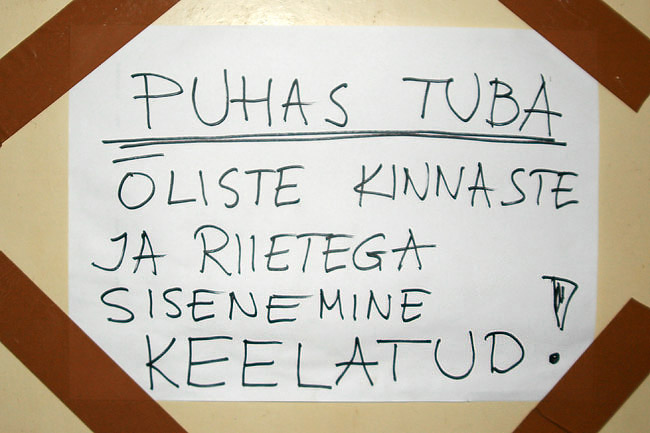 PUHAS TUBA
ÕLISTE KINNASTE
JA RIIETEGA
SISENEMINE
KEELATUD!